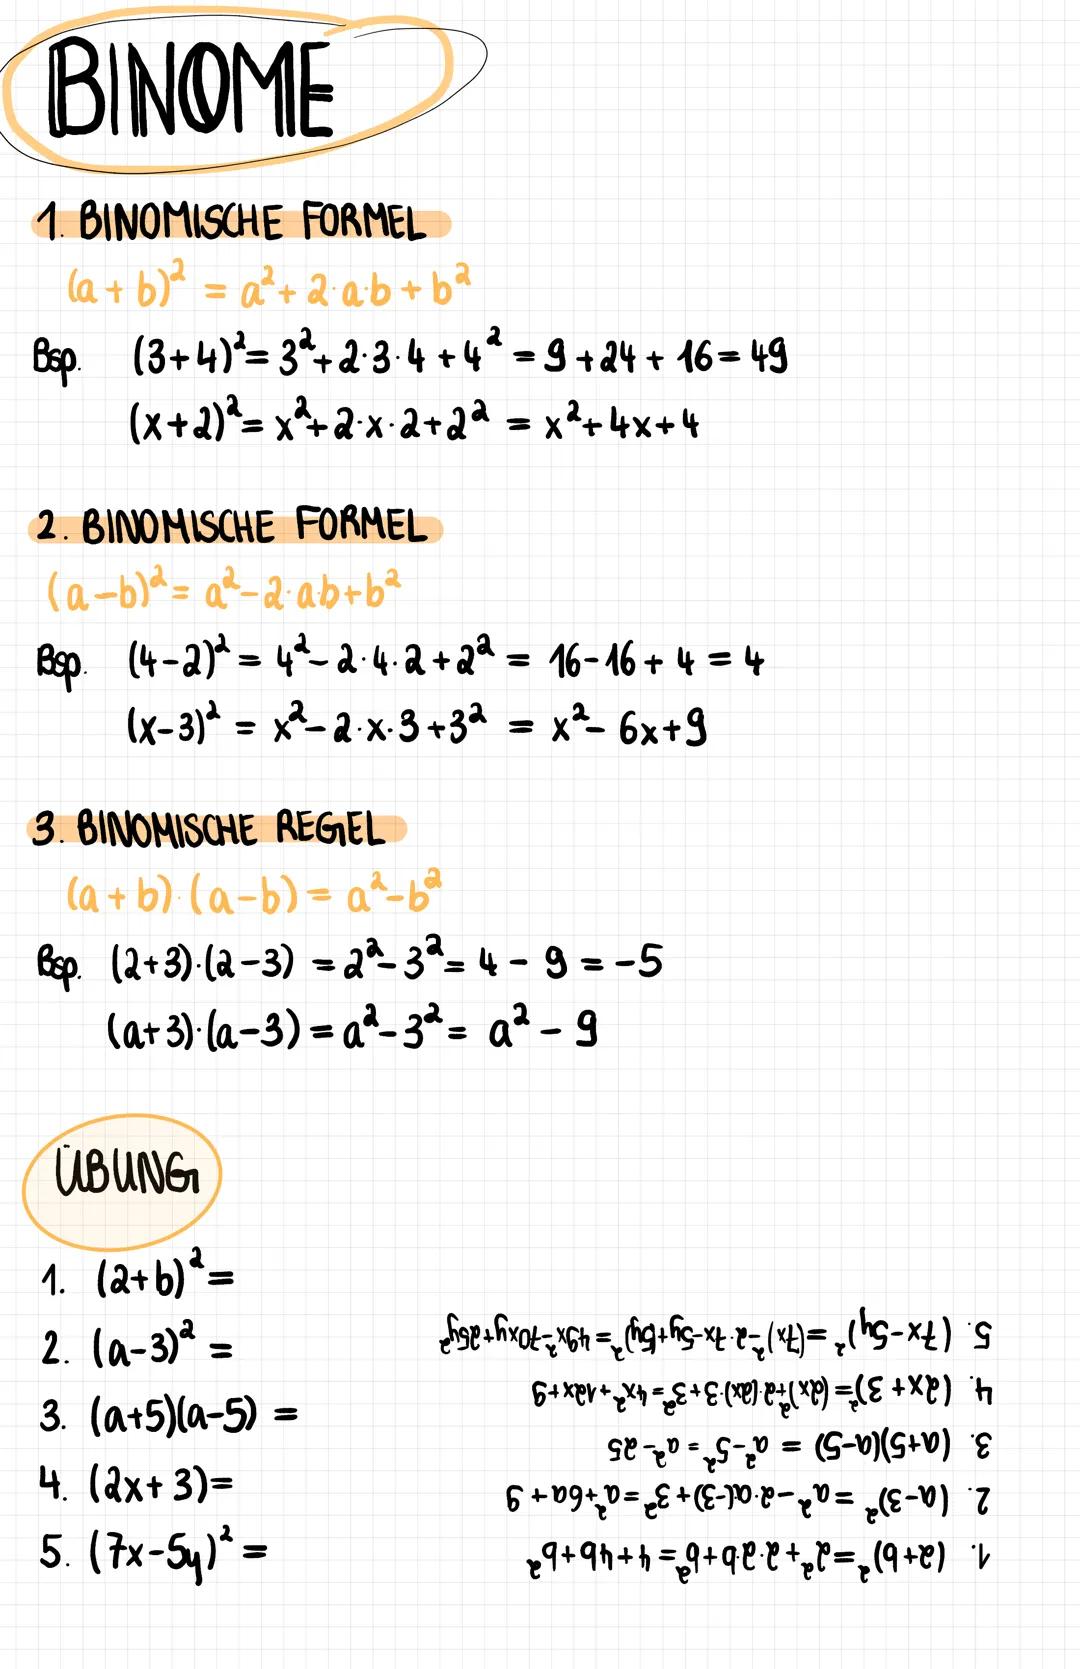 BINOME
1. BINOMISCHE FORMEL
(a + b)² = a² + 2·a·b + b²
Bsp. (3+4)² = 3² + 2·3·4 + 4² = 9 + 24 + 16 = 49
(x+2)² = x² + 2·x·2 + 2² = x² + 4x + 4
2. BINOMISCHE FORMEL
(a-b)² = a² - 2·a·b + b²
Bsp. (4-2)² = 4² - 2·4·2 + 2² = 16 - 16 + 4 = 4
(x-3)² = x² - 2·x·3 + 3² = x² - 6x + 9
3. BINOMISCHE REGEL
(a + b)·(a - b) = a² - b²
Bsp. (2+3)·(2-3) = 2² - 3² = 4 - 9 = -5
(a+3)·(a-3) = a² - 3² = a² - 9
ÜBUNG
1. (2+b)² =
2. (a-3)² =
3. (a+5)(a-5) =
4. (2x+3) =
5. (7x-5y)² =
1. (2+b)² = 2² + 2·2·b + b² = 4 + 4b + b²
2. (a-3)² = a² - 2·a(-3) + 3² = a² + 6a + 9
3. (a+5)(a-5) = a² - 5² = a² - 25
4. (2x+3)² = (2x)² + 2·(2x)·3 + 3² = 4x² + 12x + 9
5. (7x-5y)² = (7x)² - 2·7x·5y + (5y)² = 49x² - 70xy + 25y²